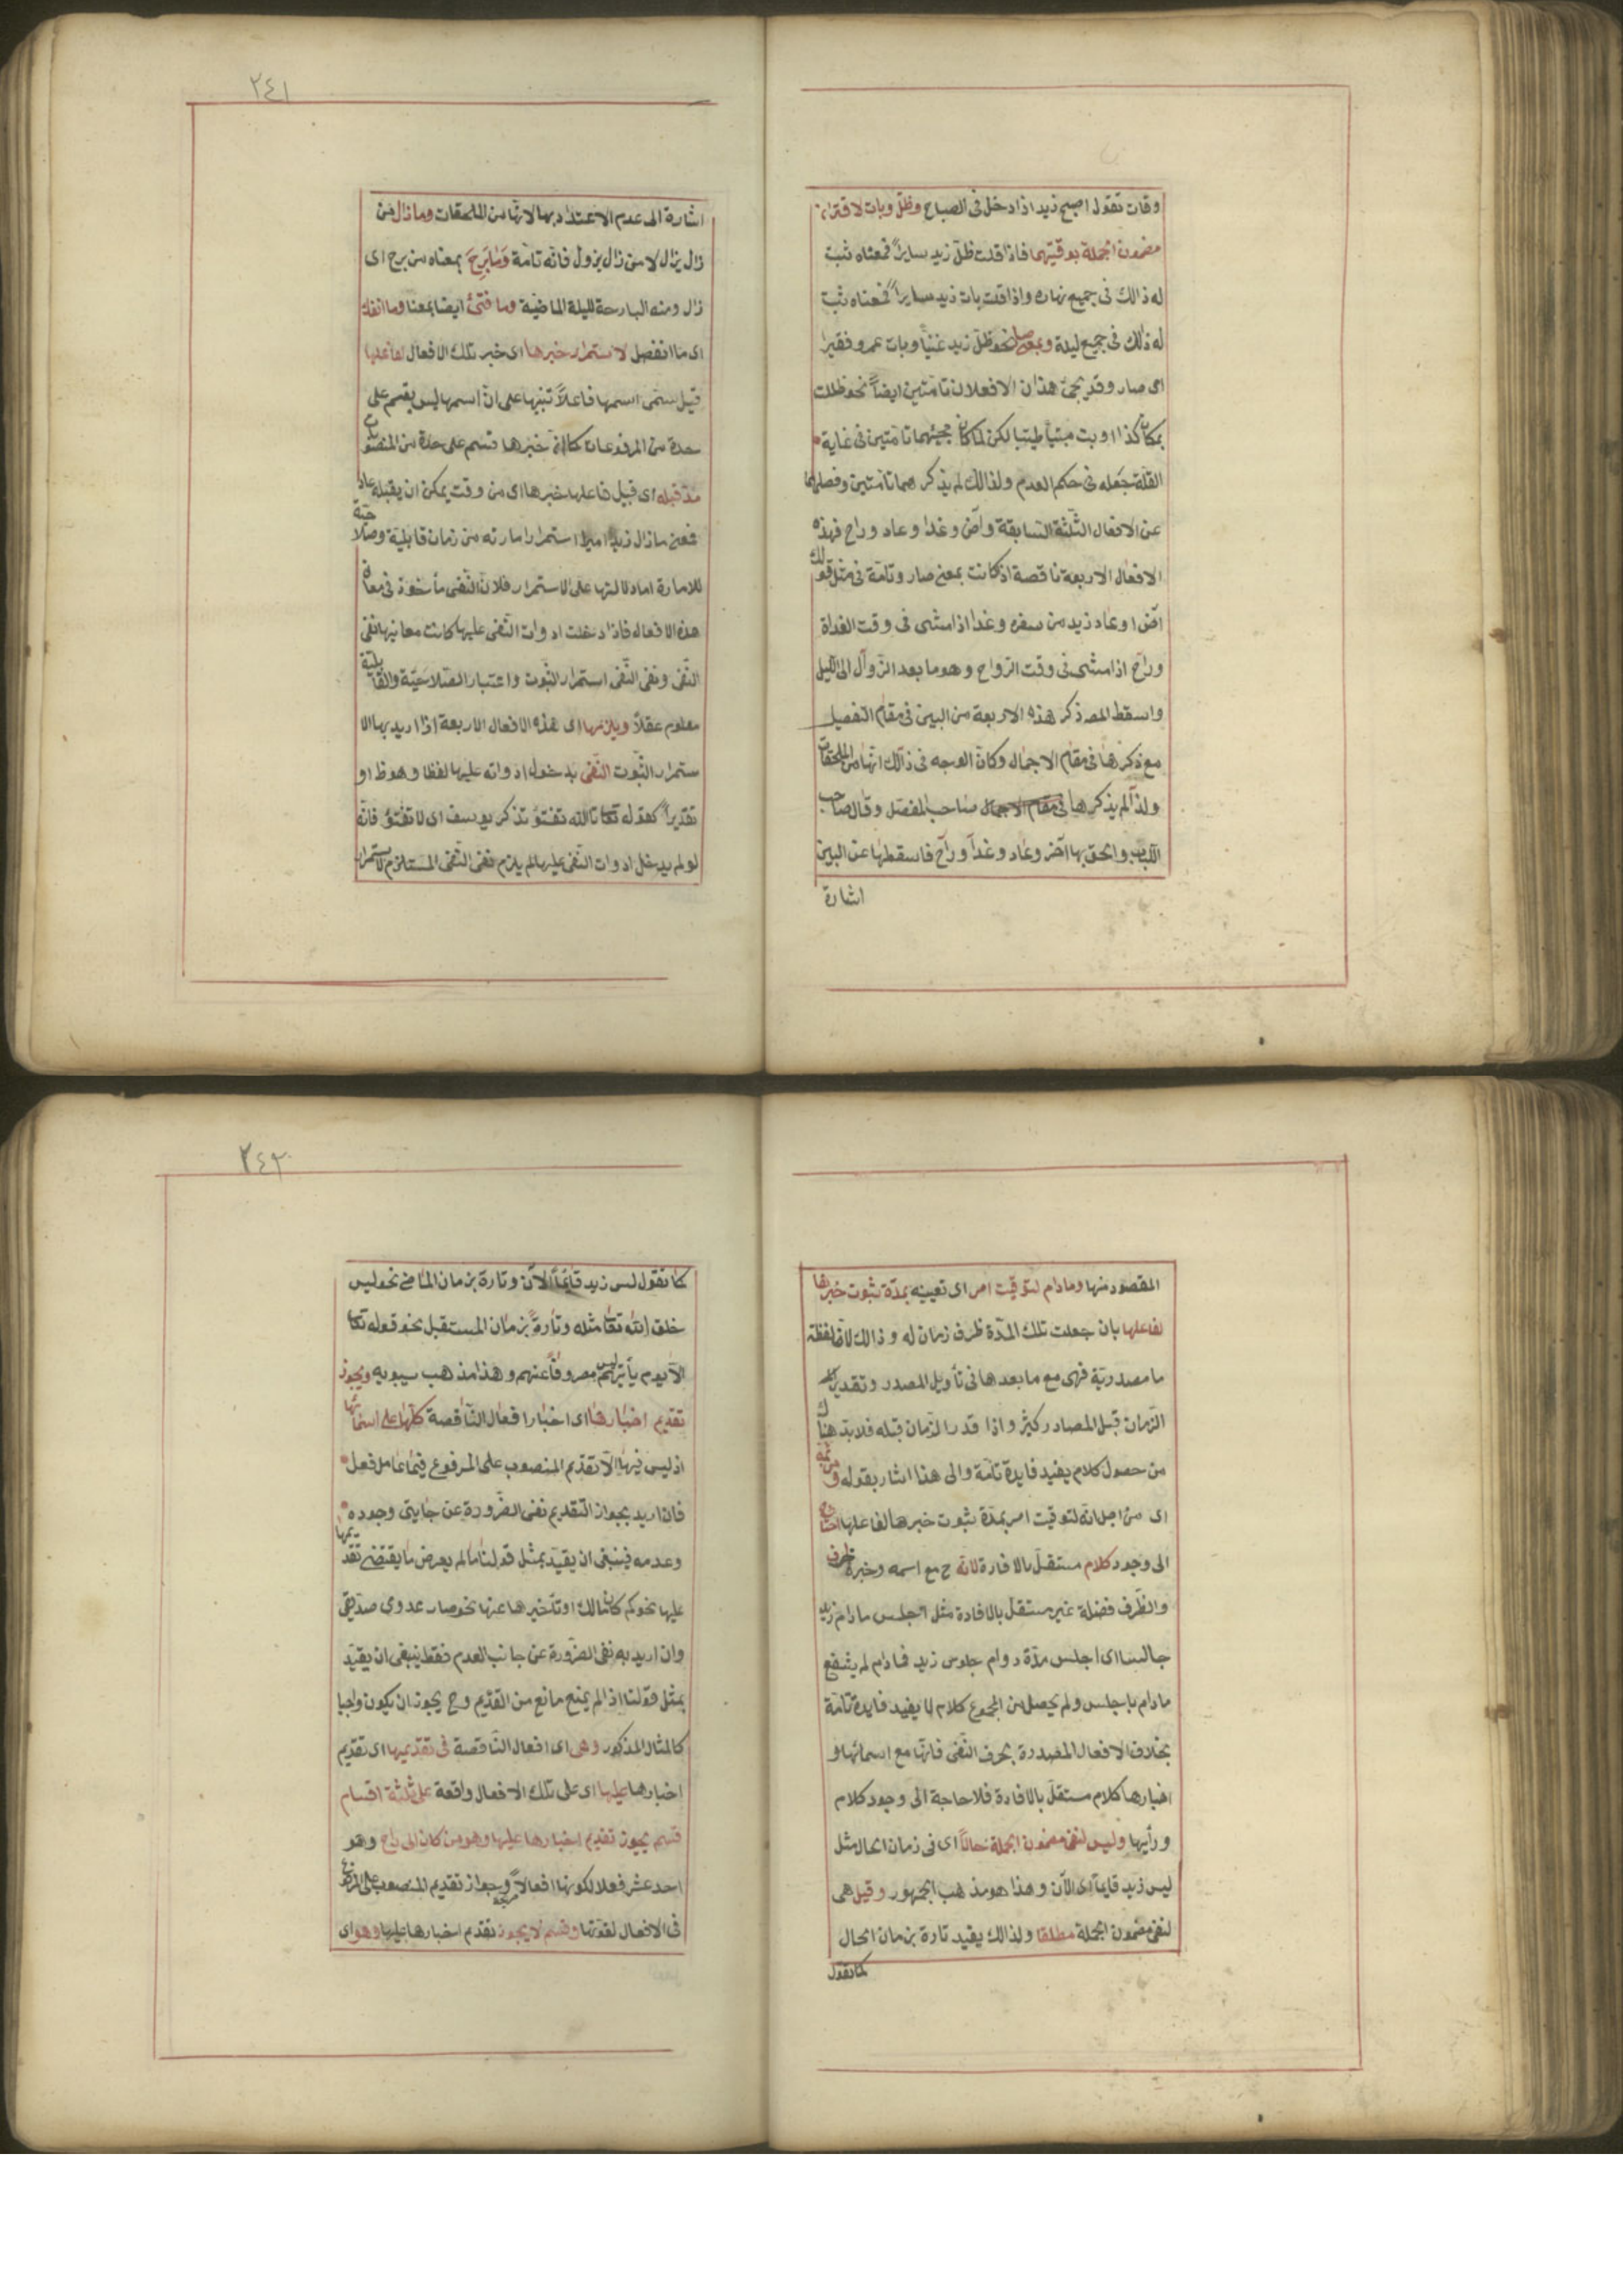 وقات تقول اصبح زيد اذا دخل فى الصباح وظل وبات لاقتران
مضمون الجملة بوقتيهما فاذا قلت ظل زيد سايراً فمعناه ثبت
له ذالك فى جميع نهاره واذا قلت بات زيد سايراً فمعناه ثبت
له ذلك فى جميع ليلة وبمعنى صار نحو ظل زيد غنياً وبات عمرو فقيرا
اى صار وقد يجئ هذان الافعلان تامتين ايضاً نحو ظلت
بمكان كذا او بت مبيتاً طيبا لكن لما كان مجيئهما تامتين فى غاية
القلة جعله فى حكم العدم ولذالك لم يذكر هما تامتين وفصلهما
عن الافعال الثلثة السابقة وآض وغدا وعاد وراح فهذه
الافعال الاربعة ناقصة اذ كانت بمعنى صار وتامة فى مثل قولك
آض او عاد زيد من سفره وغدا اذا مشى فى وقت الغداة
وراح اذا مشى فى وقت الرواح وهو ما بعد الزوال الى الليل
واسقط المصـ ذكر هذه الاربعة من البين فى مقام التفصيل
مع ذكرها فى مقام الاجمال وكان الوجه فى ذالك انها من الملحقات
ولذا لم يذكرها فى مقام الاجمال صاحب المفصل وقال صاحب
اللباب والحق بها آض وعاد وغدا وراح فاسقطها عن البين
اشارة
٢٤١
اشارة الى عدم الاعتداد بها لانها من الملحقات وما زال من
زال يزال لا من زال يزول فانه تامة وما برح بمعناه من برح اى
زال ومنه البارحة لليلة الماضية وما فتئ ايضا بمعنا وما انفك
اى ما انفصل لاستمرار خبرها اى خبر تلك الافعال لفاعلها
قيل سمى اسمها فاعلاً تنبيها على ان اسمها ليس بقسم على
حدة من المرفوعات كما ان خبرها قسم على حدة من المنصوب
مذ قبله اى قبيل فاعلها خبرها اى من وقت يمكن ان يقبله عادة
فمعنى ما زال زيد اميرا استمرار امارته من زمان قابلية وصلاحية
للامارة اما دلالتها على الاستمرار فلان النفى مأخوذ فى معانى
هذه الافعال فاذا دخلت ادوات النفى عليها كانت معانيها نفى
النفى ونفى النفى استمرار الثبوت واعتبار الصلاحية والقابلية
معلوم عقلاً ويلزمها اى هذه الافعال الاربعة اذا اريد بها الا
ستمرار الثبوت النفى بدخول ادواته عليها لفظا وهو ظ او
تقديراً كقوله تعا تالله تفتؤ تذكر يوسف اى لا تفتؤ فانه
لو لم يدخل ادوات النفى عليها لم يلزم نفى النفى المستلزم لاستمرار
المقصود منها وما دام لتوقيت امر اى تعيينه بمدة ثبوت خبرها
لفاعلها بان جعلت تلك المدة ظرف زمان له وذالك لان لفظة
ما مصدرية فهى مع ما بعدها فى تأويل المصدر وتقدير
الزمان قبل المصادر كثير واذا قدر الزمان قبله فلا بد هناك
من حصول كلام يفيد فايدة تامة والى هذا اشار بقوله ومن ثمه
اى من اجل انه لتوقيت امر بمدة ثبوت خبرها لفاعلها احتاج
الى وجود كلام مستقل بالافادة لانه ح مع اسمه وخبره ظرف
والظرف فضلة غير مستقل بالافادة مثل اجلس ما دام زيد
جالسا اى اجلس مدة دوام جلوس زيد فما دام لم يشفع
ما دام باجلس ولم يحصل من المجموع كلام لا يفيد فايدة تامة
بخلاف الافعال المصدرة بحرف النفى فانها مع اسمائها و
اخبارها كلام مستقل بالافادة فلا حاجة الى وجود كلام
ورأيها وليس لنفى مضمون الجملة حالاً اى فى زمان الحال مثل
ليس زيد قايماً اى الآن وهذا هو مذهب الجمهور وقيل هى
لنفى مضمون الجملة مطلقا ولذالك يقيد تارة بزمان الحال
كما تقول
٢٤٢
كما تقول ليس زيد قايماً الآن وتارة بزمان الماضى نحو ليس
خلق الله تعا مثله وتارة بزمان المستقبل نحو قوله تعا
الا يوم يأتيهم ليس مصروفاً عنهم وهذا مذهب سيبويه ويجوز
تقديم اخبارها اى اخبار افعال الناقصة كلها على اسمائها
اذ ليس فيها الا تقديم المنصوب على المرفوع فيما عامل فعل
فان اريد بجواز التقديم نفى الضرورة عن جانبى وجوده
وعدمه فينبغى ان يقيد بمثل قولنا ما لم يعرض ما يقتضى تقديمها
عليها نحو كم كان مالك او تأخيرها عنها نحو صار عدوى صديقى
وان اريد به نفى الضرورة عن جانب العدم فقط ينبغى ان يقيد
بمثل قولنا اذا لم يمنع مانع من القديم وح يجوز ان يكون واجبا
كالمثال المذكور وهى اى افعال الناقصة فى تقديمها اى تقديم
اخبارها عليها اى على تلك الافعال واقعة على ثلثة اقسام
قسم يجوز تقديم اخبارها عليها وهو من كان الى راح وهو
احد عشر فعلا لكونها افعالاً وجواز تقديم المنصوب على المرفوع
فى الافعال لقوتها وقسم لا يجوز تقديم اخبارها عليها وهو اى